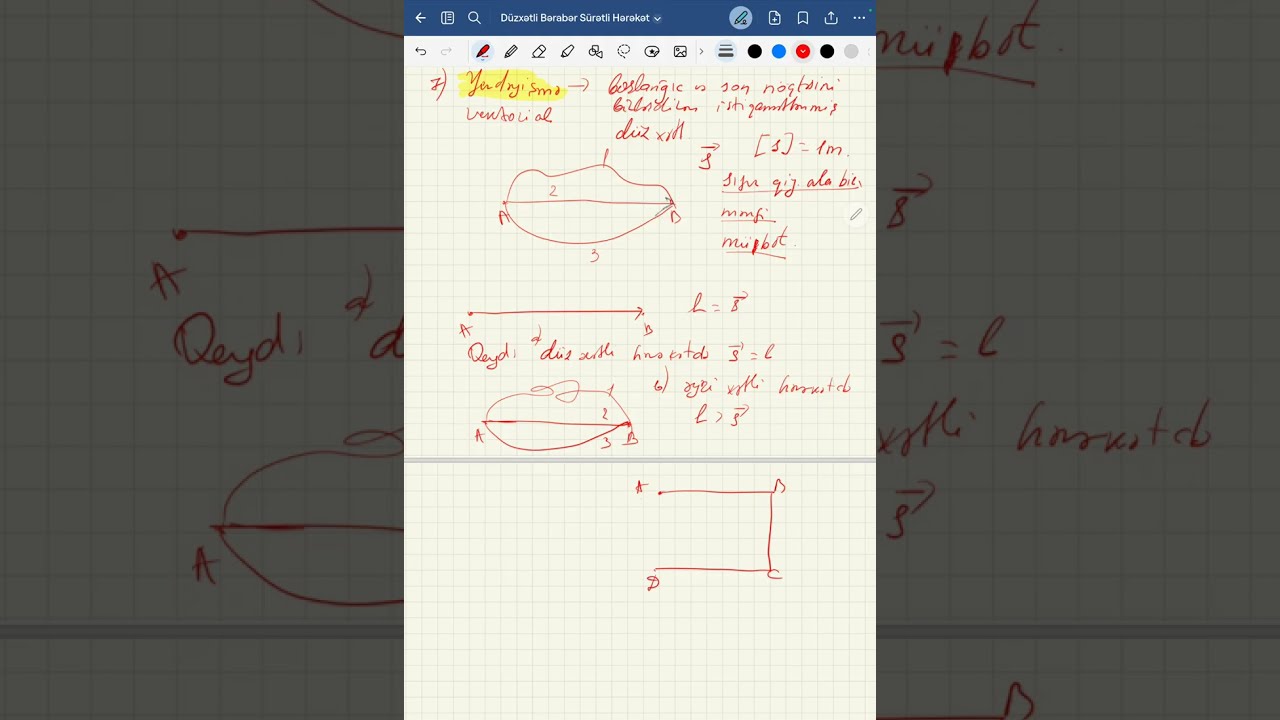 Düzxətli Bərabər Sürətli Hərəkət
7) Yerdəyişmə → başlanğıc və son nöqtəsini
vektorial birləşdirən istiqamətlənmiş
düz xətt
S⃗ [S] = 1m.
sıfır qiy. ala bilər
mənfi
müsbət.
1
2
A B
3
A B
l = S⃗
Qeyd: a) düz xətli hərəkətdə S⃗ = l
b) əyri xətli hərəkətdə
l > S⃗
1
2
A B
3
A B
D C
müsbət.
S⃗
A
a)
Qeyd: d
S⃗ = l
xətli hərəkətdə
S⃗
A
B